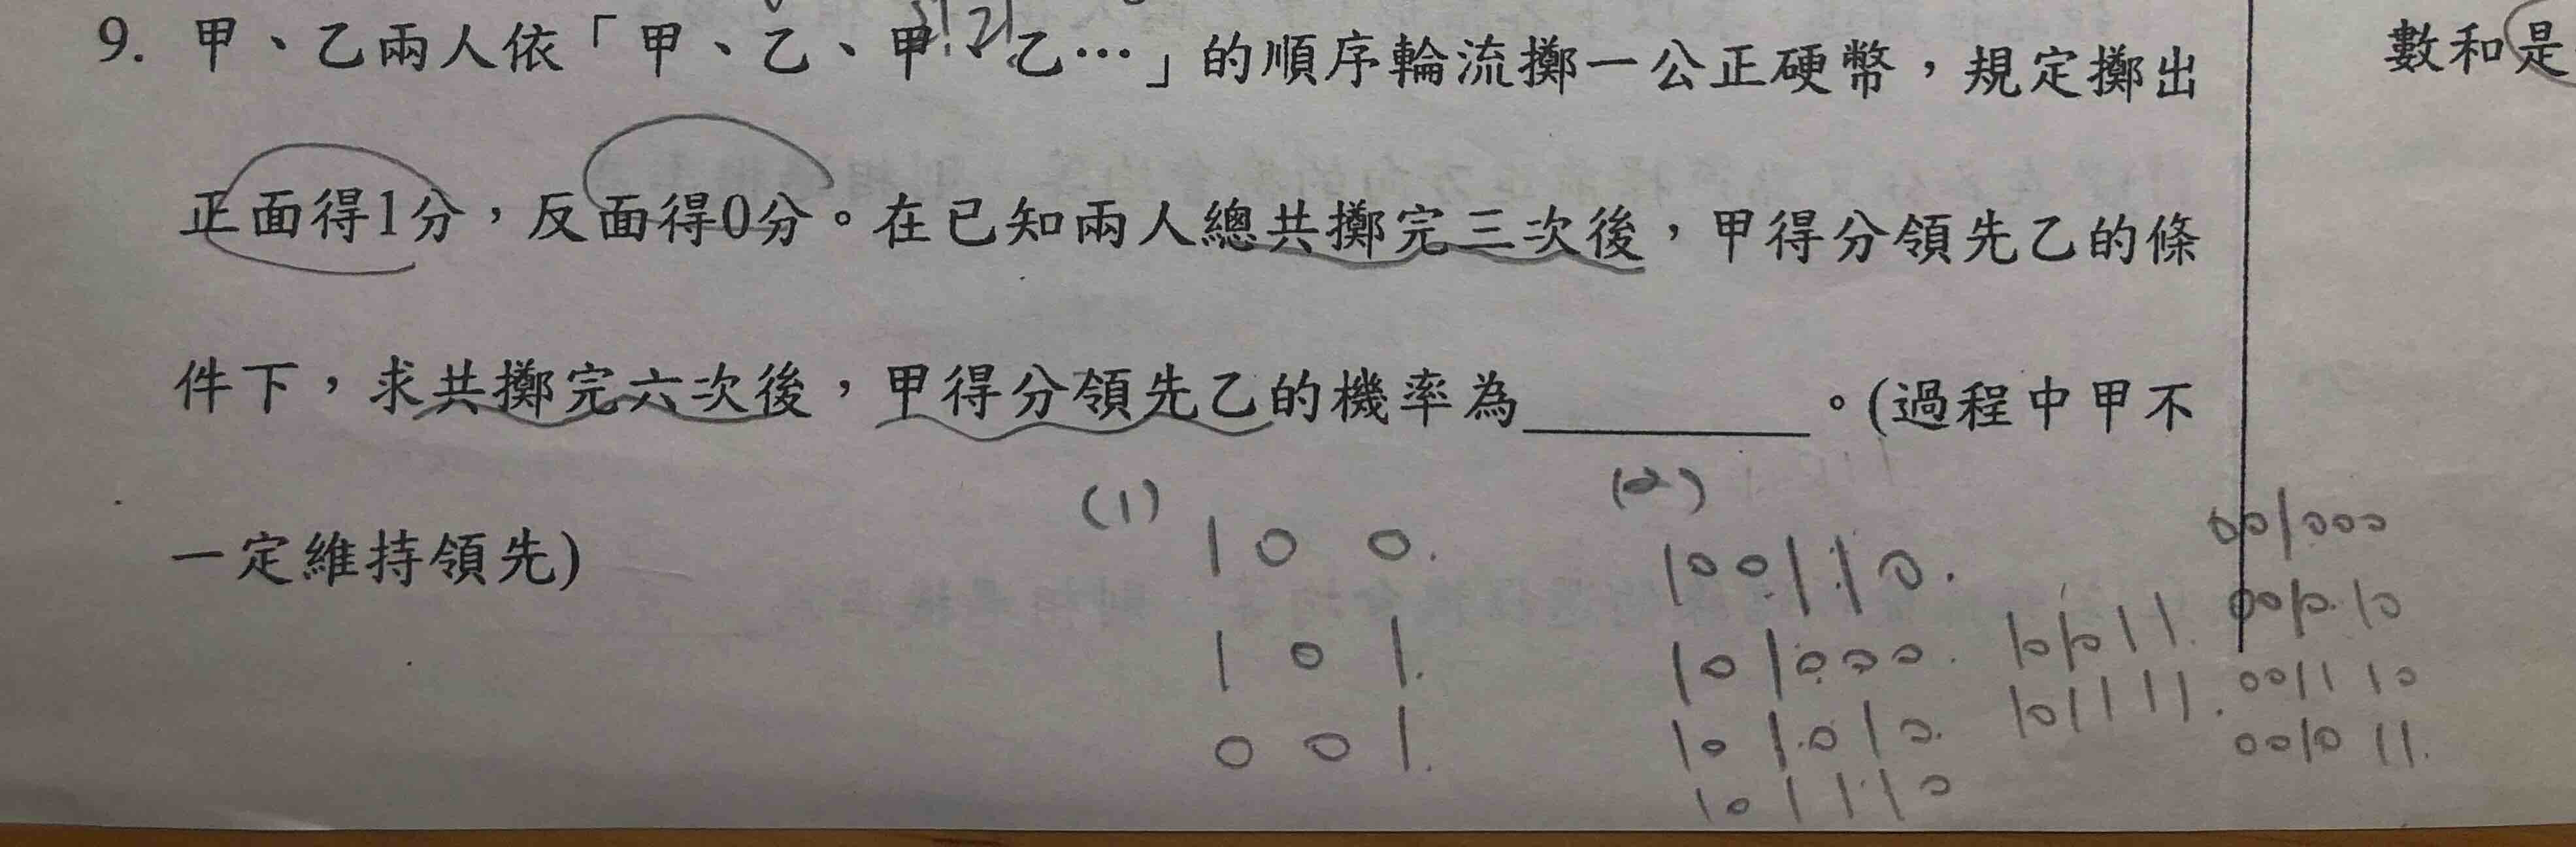 9. 甲、乙兩人依「甲、乙、甲、乙…」的順序輪流擲一公正硬幣，規定擲出
正面得1分，反面得0分。在已知兩人總共擲完三次後，甲得分領先乙的條
件下，求共擲完六次後，甲得分領先乙的機率為________。(過程中甲不
一定維持領先)
數和是
(1)
1 0 0.
1 0 1.
0 0 1.
(2)
100110.
101000.
101010.
101110
101011.
101111.
001000
001010
001110
001011.